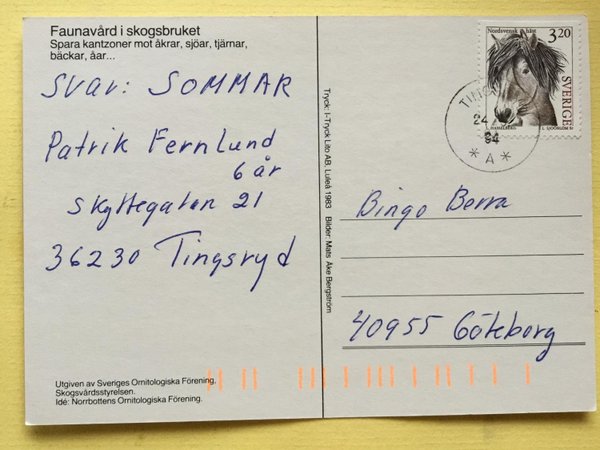 Faunavård i skogsbruket
Spara kantzoner mot åkrar, sjöar, tjärnar,
bäckar, åar...
Svar: SOMMAR
Patrik Fernlund
6 år
Skyttegatan 21
36230 Tingsryd
Utgiven av Sveriges Ornitologiska Förening.
Skogsvårdsstyrelsen.
Idé: Norrbottens Ornitologiska Förening.
Tryck: I-Tryck Lito AB, Luleå 1983 Bilder: Mats Åke Bergström
Nordsvensk häst
3,20
SVERIGE
24
94
* A *
Bingo Berra
40955 Göteborg